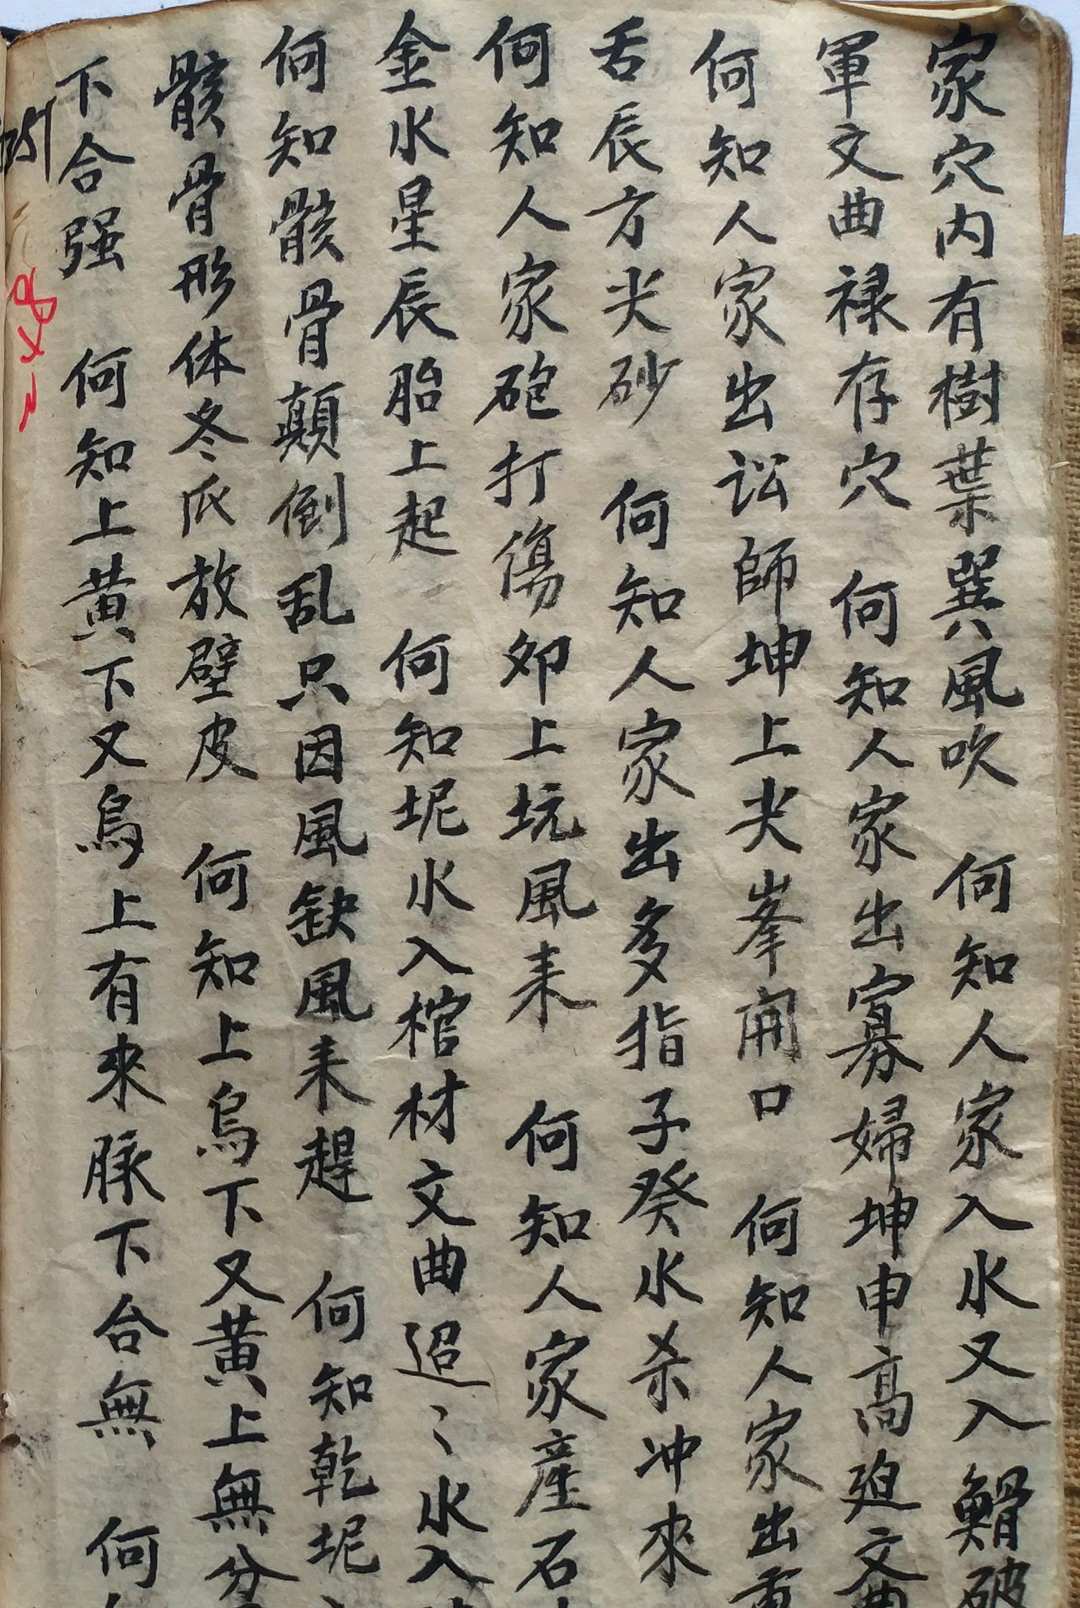 家穴内有樹葉巽風吹　何知人家入水又入鰗破
軍文曲禄存穴　何知人家出寡婦坤申高迫文曲
何知人家出讼師坤上尖峯開口　何知人家出重
舌辰方尖砂　何知人家出多指子癸水杀冲來
何知人家砲打傷夘上坑風耒　何知人家産石
金水星辰胎上起　何知坭水入棺材文曲迢〻水入
何知骸骨顛倒乱只因風缺風耒趕　何知乾坭
骸骨形体冬瓜放壁皮　何知上烏下又黄上無分
下合强　何知上黄下又烏上有來脉下合無　何